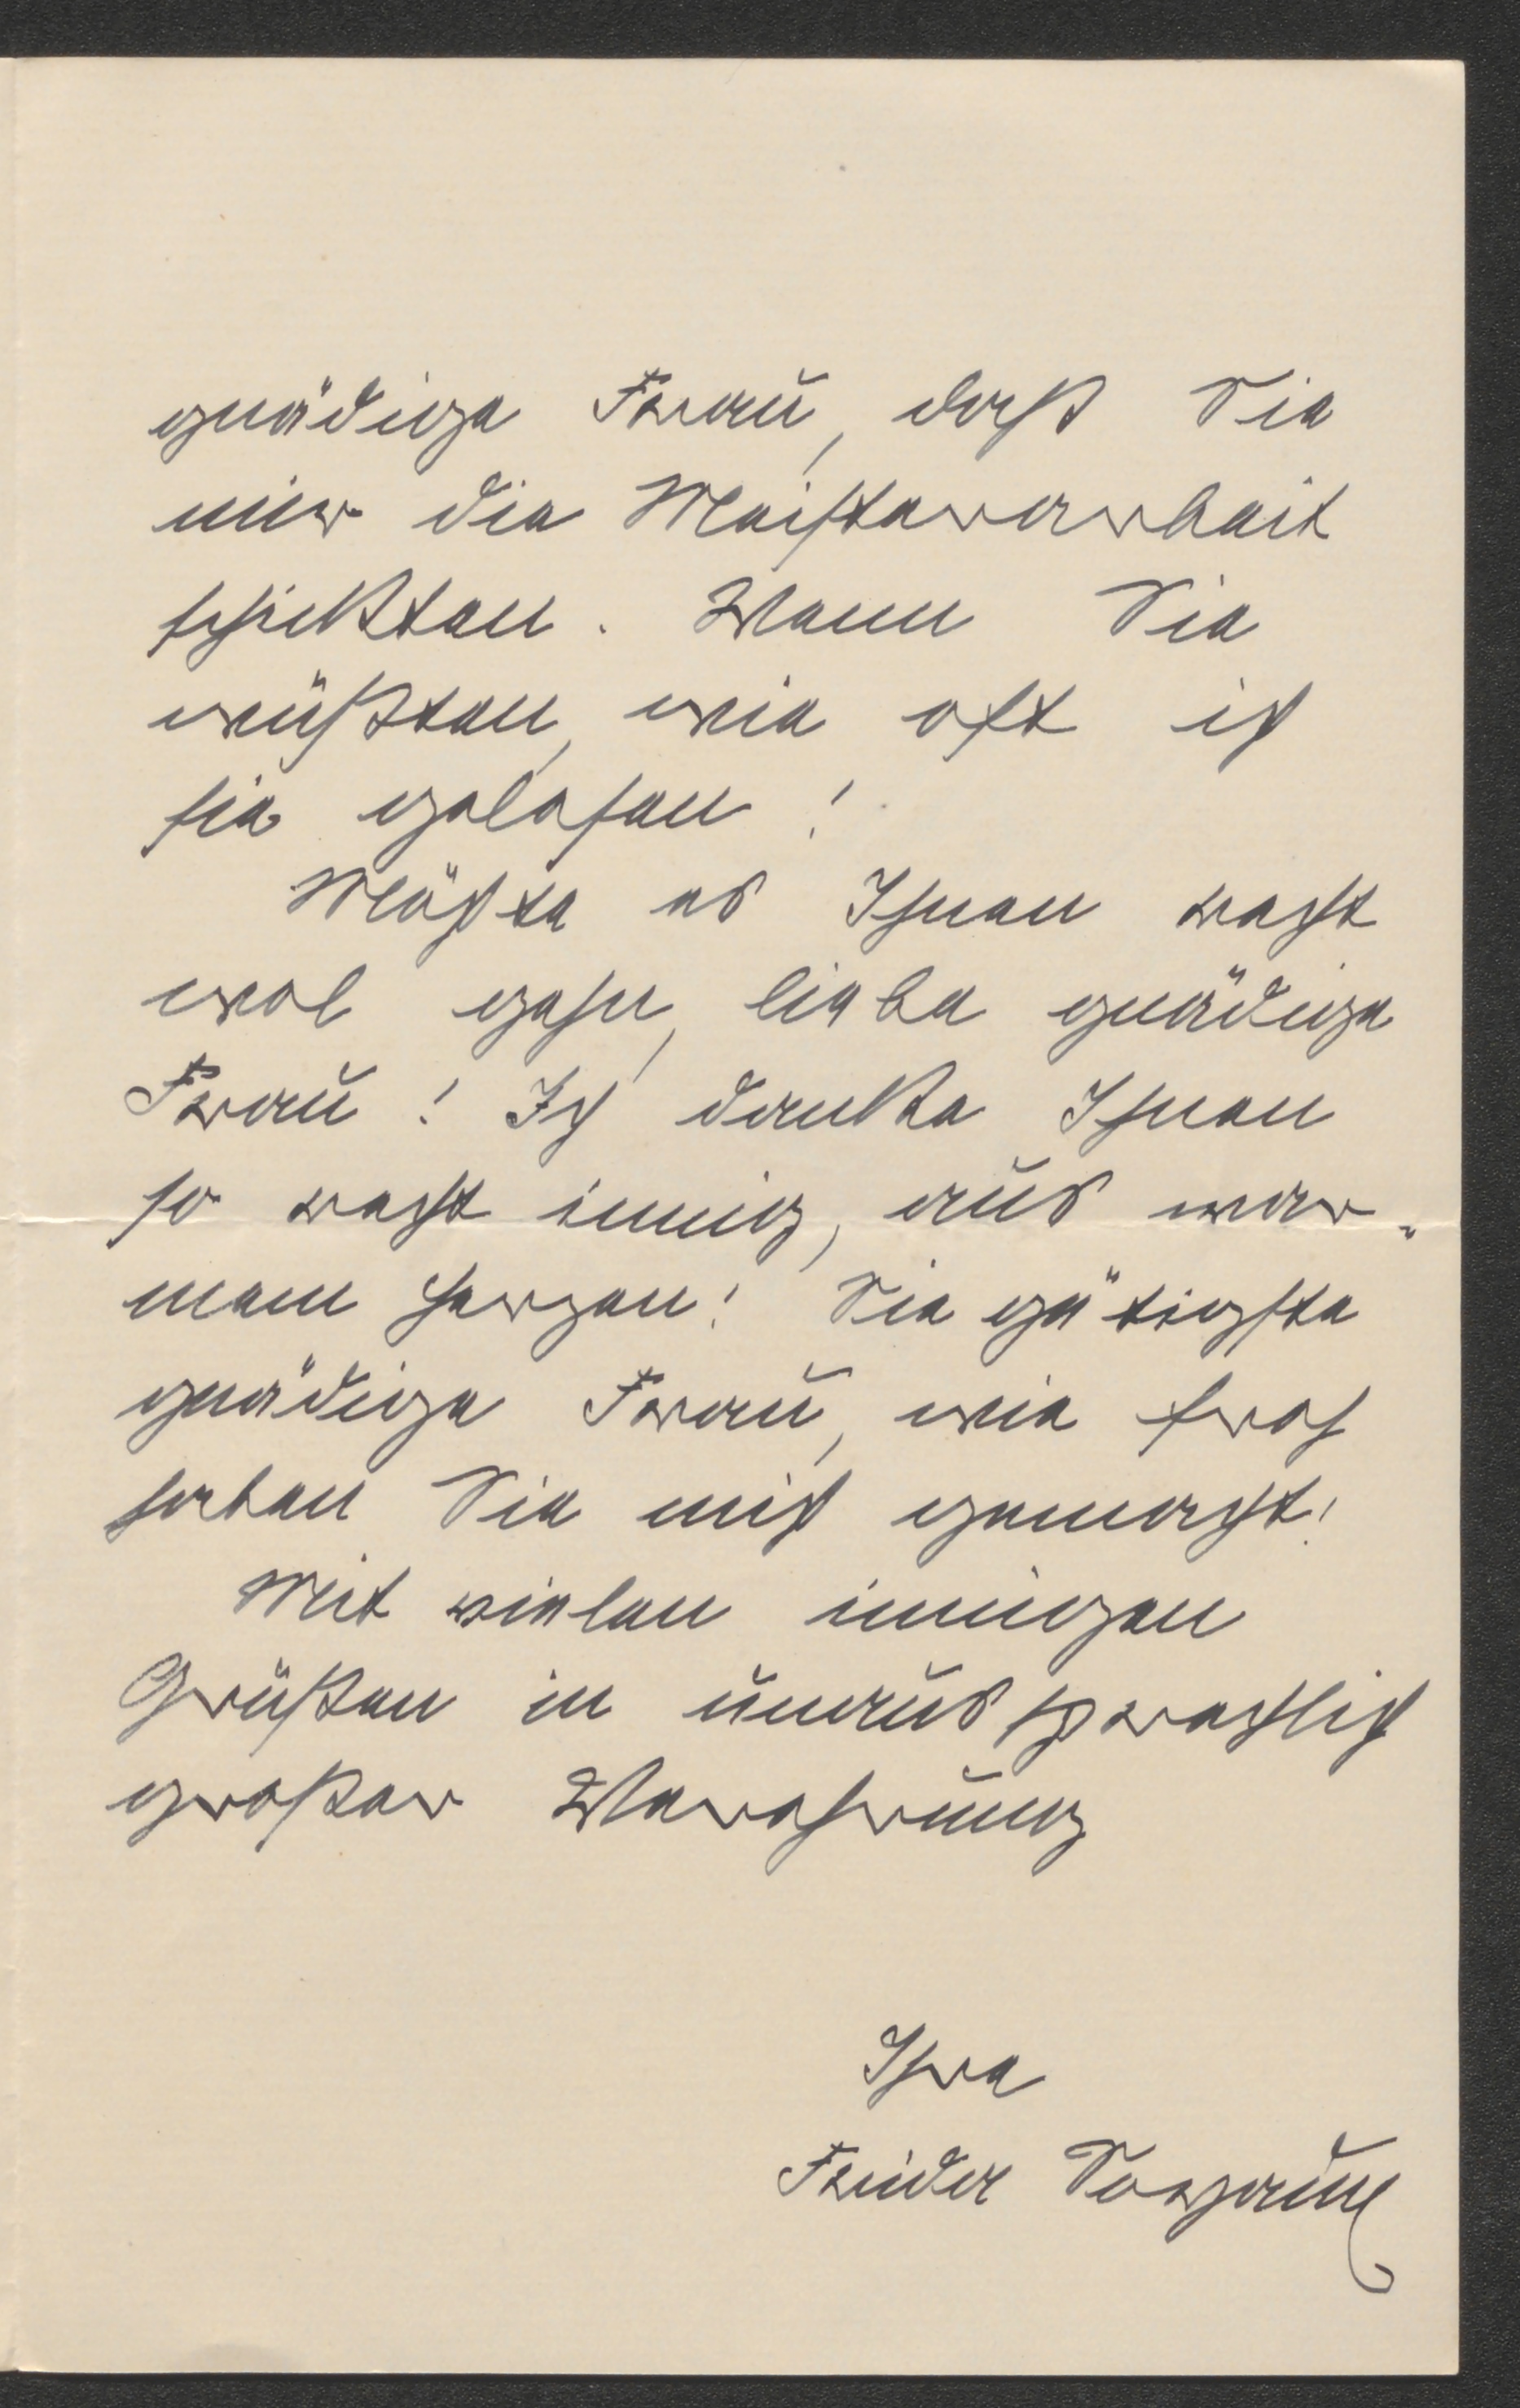 gnädige Frau, daß Sie
mir die Meisterarbeit
schickten. Wenn Sie
wüßten, wie oft ich
sie gelesen!
Möchte es Ihnen recht
wol gehn, liebe gnädige
Frau! Ich danke Ihnen
so recht innig, aus war-
mem Herzen! Sie gütigste
gnädige Frau, wie froh
haben Sie mich gemacht!
Mit vielen innigen
Grüßen in unaussprechlich
großer Verehrung
Ihre
Frida